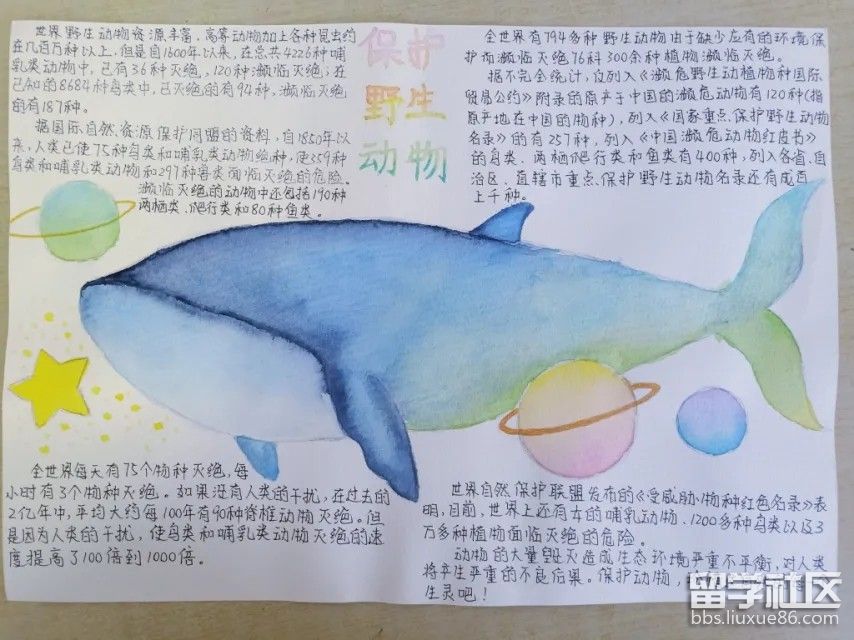 保护
野生
动物
世界野生动物资源丰富，高等动物加上各种昆虫约
在几百万种以上，但是自1600年以来，在总共4226种哺
乳类动物中，已有36种灭绝，120种濒临灭绝；在
已知的8684种鸟类中，已灭绝的有94种，濒临灭绝
的有187种。
据国际自然资源保护同盟的资料，自1850年以
来，人类已使75种鸟类和哺乳类动物绝种，使359种
鸟类和哺乳类动物和297种兽类面临灭绝的危险。
濒临灭绝的动物中还包括190种
两栖类、爬行类和80种鱼类。
全世界有794多种野生动物由于缺少应有的环境保
护而濒临灭绝76科300余种植物濒临灭绝。
据不完全统计，仅列入《濒危野生动植物种国际
贸易公约》附录的原产于中国的濒危动物有120种(指
原产地在中国的物种)，列入《国家重点保护野生动物
名录》的有257种，列入《中国濒危动物红皮书》
的鸟类、两栖爬行类和鱼类有400种，列入各省、自
治区、直辖市重点保护野生动物名录还有成百
上千种。
全世界每天有75个物种灭绝，每
小时有3个物种灭绝。如果没有人类的干扰，在过去的
2亿年中，平均大约每100年有90种脊椎动物灭绝。但
是因为人类的干扰，使鸟类和哺乳类动物灭绝的速
度提高了100倍到1000倍。
世界自然保护联盟发布的《受威胁物种红色名录》表
明，目前，世界上还有女的哺乳动物、1200多种鸟类以及3
万多种植物面临灭绝的危险。
动物的大量毁灭造成生态环境严重不平衡，对人类
将产生严重的不良后果。保护动物，
生灵吧！
留学社区
bbs.liuxue86.com